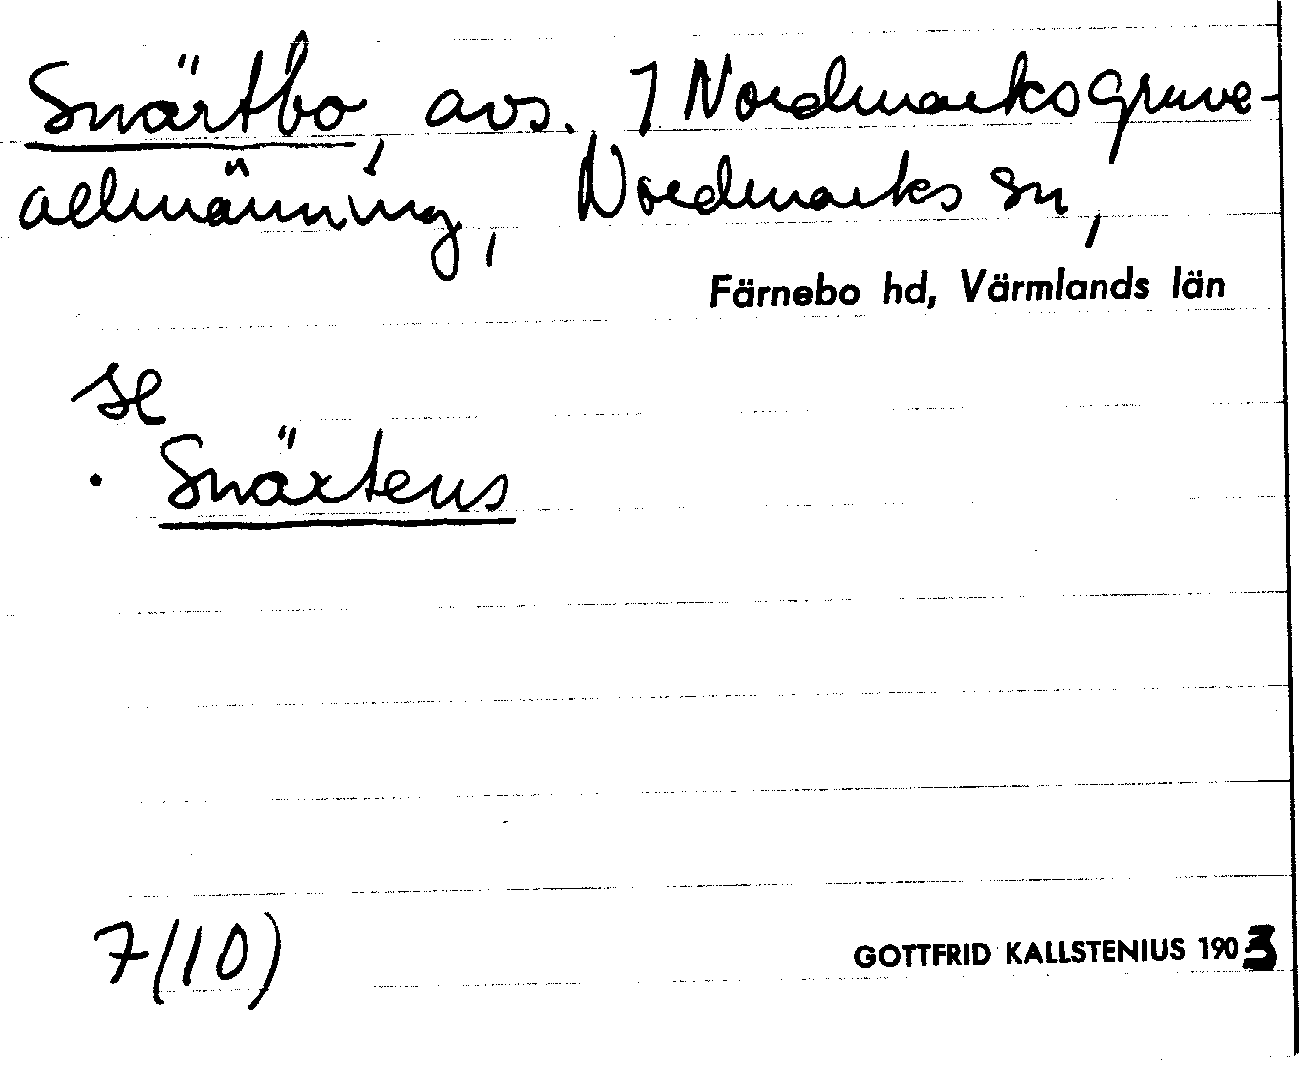 Snärtbo, avs. 1 Nordmarks gruve-
allmänning, Nordmarks sn,
Färnebo hd, Värmlands län
se
. Snärtens
7(10)
GOTTFRID KALLSTENIUS 1903